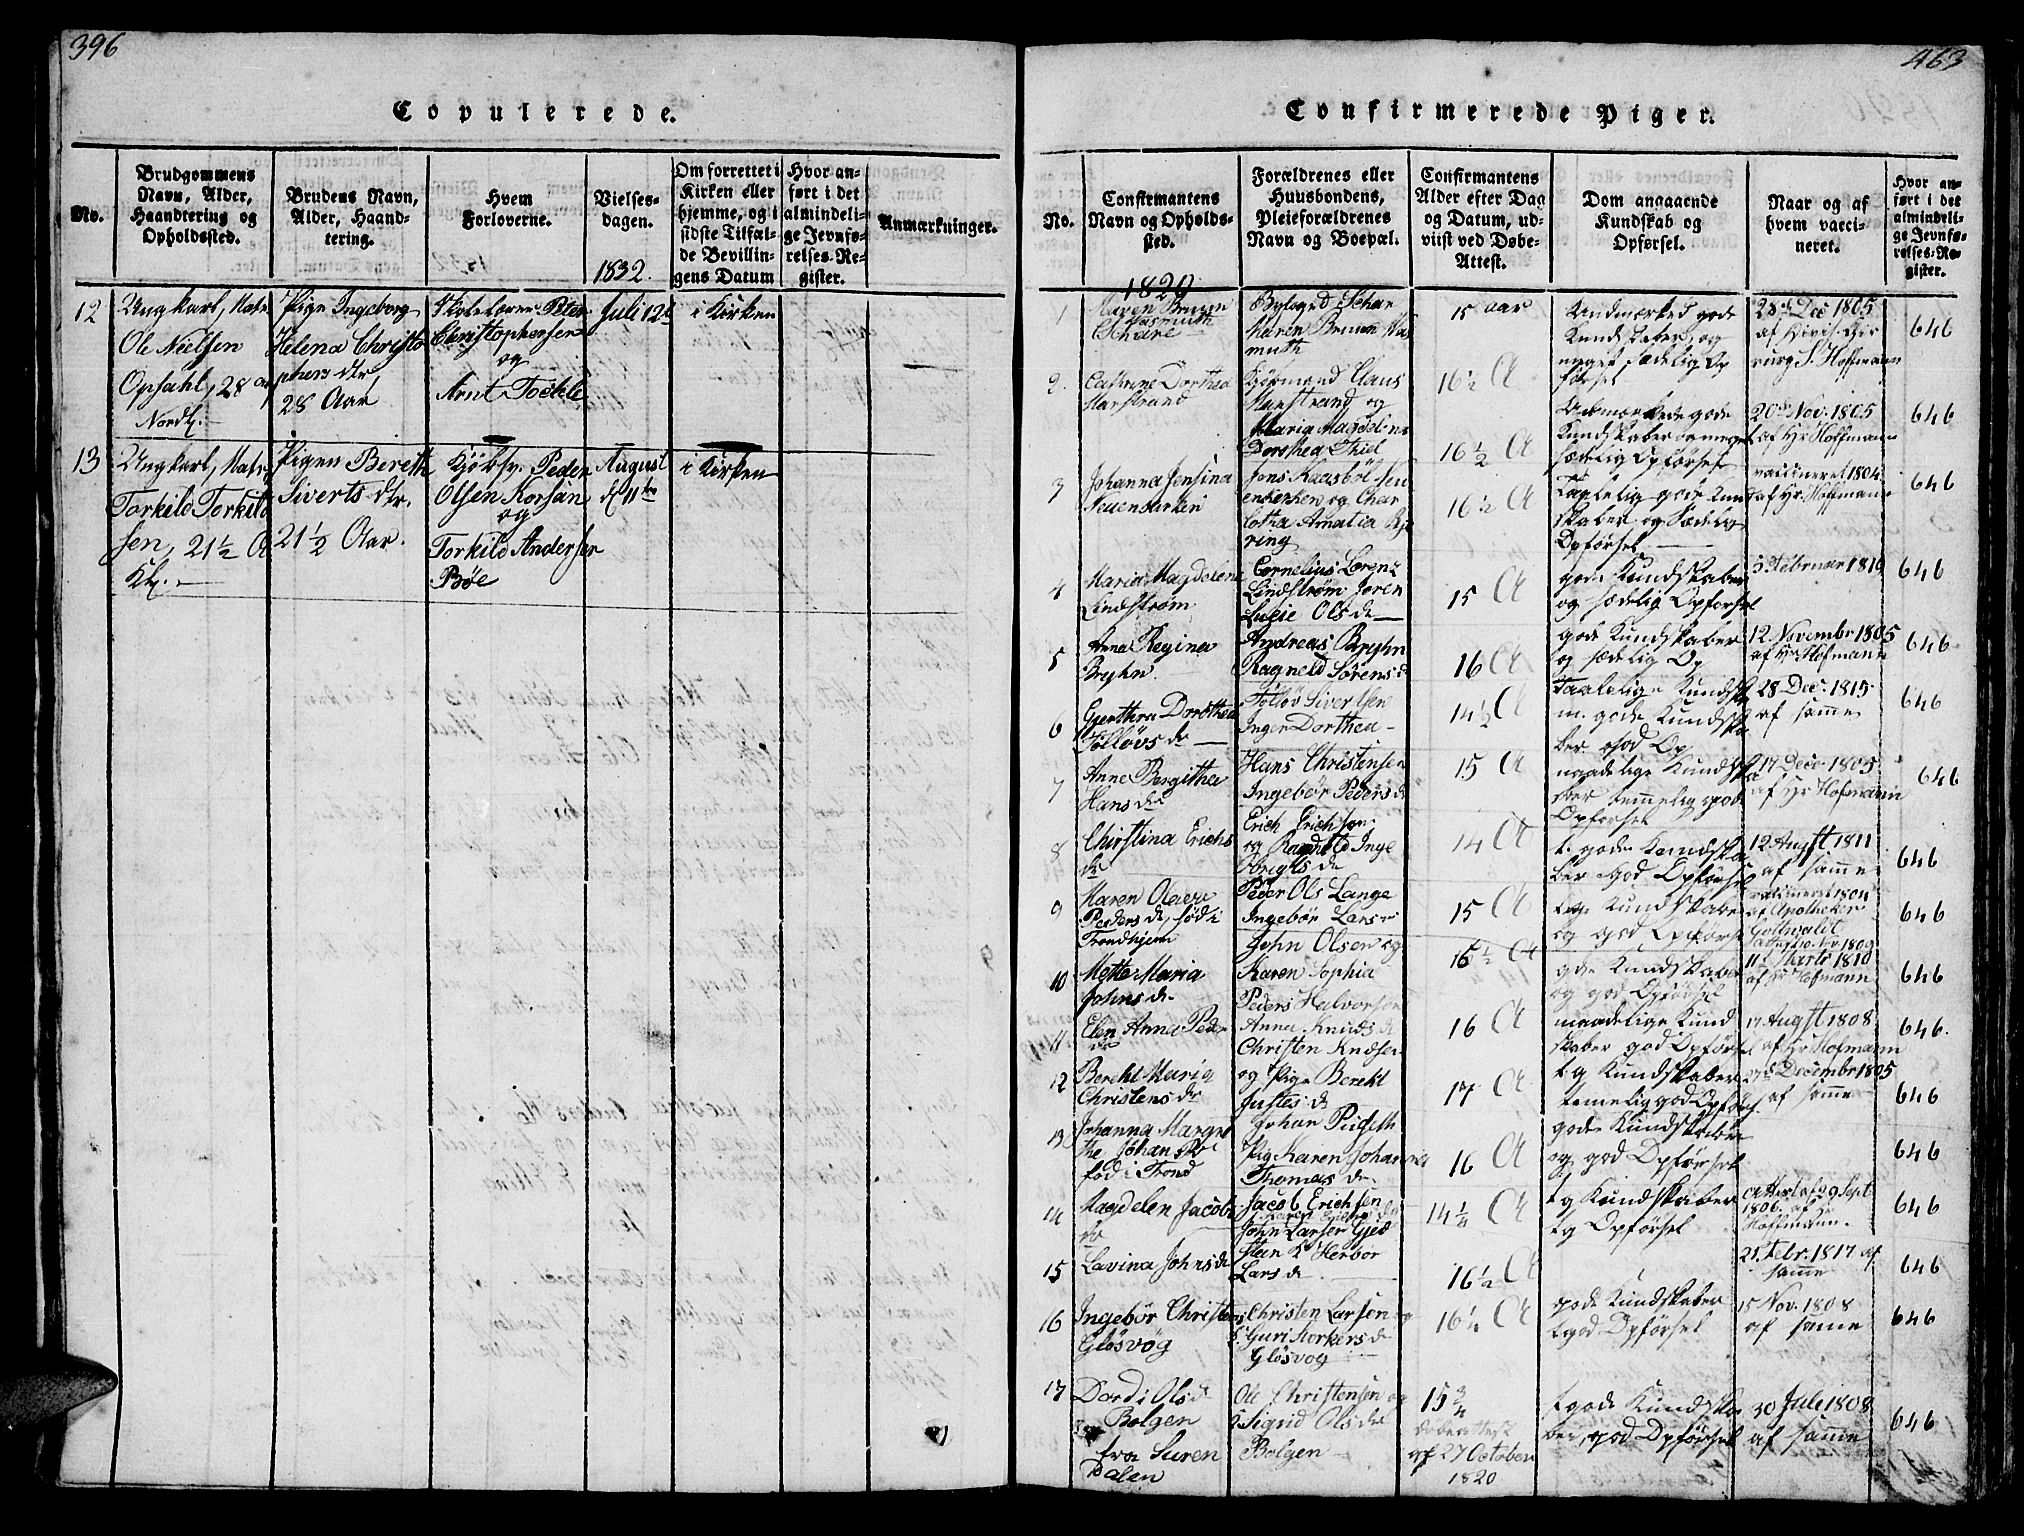 396
Copulerede.
No.
Brudgommens
Navn, Alder,
Haandtering og
Opholdssted.
Brudens Navn,
Alder, Haand-
tering.
Hvem
Forloverne.
Vielses-
dagen.
1832.
Om forrettet i
Kirken eller
hjemme, og i
sidste Tilfæl-
de Bevillin-
gens Datum
Hvor an-
ført i det
almindeli-
ge Jevnfø-
relses-Re-
gister.
Anmærkninger.
12
Ungkarl, Matr
Ole Nielsen
Opsahl, 28 aar
Nordl.
Pige Ingeborg
Helena Christo
phers dtr
28 Aar
Peter
Christophersen
og
Arnt
Juli 12te
i Kirken
13
Ungkarl, Matr
Torkild Torkild
sen, 21½ A
Kl.
Pigen Bereth
Siverts dtr.
21½ Aar.
Kjöbsv. Peder
Olsen Korsan
og
Torkild Andersen
Böe
August
d 11te
i Kirken
463
Confirmerede Piger.
No.
Confirmantens
Navn og Opholds-
sted.
Forældrenes eller
Huusbondens,
Pleieforældrenes
Navn og Boepæl.
Confirmantens
Alder efter Dag
og Datum, ud-
viist ved Døbe-
Attest.
Dom angaaende
Kundskab og
Opførsel.
Naar og af
hvem vacci-
neret.
Hvor an-
ført i det
almindeli-
ge Jevnfø-
relses-Re-
gister.
1820
1
Maren Bruun
Maren Bruun
muth
15 aar
gode
Kundskaber, og
meget sædelig Op
førsel
28 Dec 1805
af
S. Hoffmann
646
2.
Cathrine Dorthea
Marstrand
Claus
Marstrand og
Maria Magdelena
Dorothea Thiel
16½ A
gode
Kundskaber og meget
sædelig Opførsel
20d Nov. 1805
af Hr Hoffmann
646
3
Johanna Jensina
og Char
lotha Amalia
ring
16½ A
gode Kund
skaber og Sædelig
Opførsel
vaccineret 1804
af Hr. Hoffmann
646
4
Maria Magdelena
Lindström
Cornelius Lorenz
Lindström Joren
Lucie Ols dr
15 A
gode Kundskaber
og sædelig Opførsel
Februar 1819
646
5
Anna Regina
Bryhn
Andreas Bryhn
Ragneld Sörens d
16 A
gode Kundskaber
og sædelig Op
12 Novembr 1805
af Hr Hofmann
646
6
Dorothea
Tölløvs dr
Tölløv Sivertsen
Inger Dorthea
14½ A
m. gode Kundska
ber god Op
28 Dec. 1815
af samme
646
7
Anne Bergitha
Hans der
Hans Christensen
Ingebör Peders d
15 A
maadelige Kundska
ber temmelig god
Opførsel
17 Dece 1805
af Hr Hofmann
646
8
Christina Erichs
dr
Erich Erichsen
og Inge
brigts dr
14 A
t. gode Kundska
ber God Opførsel
12 Augst 1811
af samme
646
9
Maren
Peders d, född i
Trondhjem
Peder Ols Lange
Ingebör Lars
15 A
Kundskaber
og god Opførsel
vaccineret 1804
af Apotheker
1809
646
10
Mette Maria
Johns dr
John Olsen og
Karen Sophia
15½ A
gode Kundskaber
og god Opførsel
11 Marts 1810
af Hr Hofmann
646
11
Elen Anna Peder
dr
Peders Halvorsen
Anna Knuds d
16 A
maadelige Kund
skaber god Opførsel
17 Augst 1808
af Hr Hofmann
646.
12
Berekt Maria
Christens dr
Christen Knudsen
og Pige Berekt
Justes d
17 A
tg Kundskaber
temelig god Opførsel
27d Decembr 1805
af samme
646
13
Johanna Margre
the Johans
föd i Trond
Johan
Pig Karen Johanna
Thomas dr
16 A
gode Kundskaber
og god Opførsel
646
14
Magdelen Jacobs
dr
Jacob Erichsen
14¼ A
tg Kundskaber
tg Opførsel
Attest af 29 Sept
1806. af Hr
Hoffmann.
646
15
Lavina Johns d
John Larsen Gjed
Herbor
Lars d
16½ A
21. Febr. 1817 af
samme
646
16
Ingebör Christens
Glösvög
Christen Larsen og
Guri Korkers d
Glösvog
16¼ A
gode Kundskaber
tgod Opførsel
15 Nov. 1808
af samme
646
17
Dordi Ols d
Bolgen
fra Suren
Dalen
Ole Christensen og
Sigrid Ols dr
Bolgen
15¾
döbeattest
af 27 October
1820
tgode Kundska
ber, god Opførsel
30 Juli 1808
af samme
646